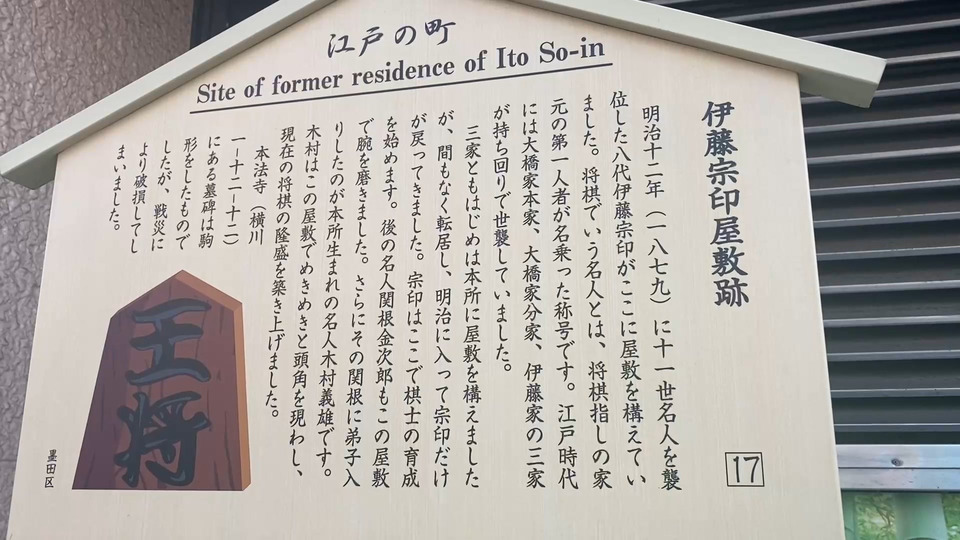 江戸の町
Site of former residence of Ito So-in
伊藤宗印屋敷跡
明治十二年（一八七九）に十一世名人を襲
位した八代伊藤宗印がここに屋敷を構えてい
ました。将棋でいう名人とは、将棋指しの家
元の第一人者が名乗った称号です。江戸時代
には大橋家本家、大橋家分家、伊藤家の三家
が持ち回りで世襲していました。
三家ともはじめは本所に屋敷を構えました
が、間もなく転居し、明治に入って宗印だけ
が戻ってきました。宗印はここで棋士の育成
を始めます。後の名人関根金次郎もこの屋敷
で腕を磨きました。さらにその関根に弟子入
りしたのが本所生まれの名人木村義雄です。
木村はこの屋敷でめきめきと頭角を現わし、
現在の将棋の隆盛を築き上げました。
本法寺（横川
一－十二－十二）
にある墓碑は駒
形をしたもので
したが、戦災に
より破損してし
まいました。
王将
墨田区
17